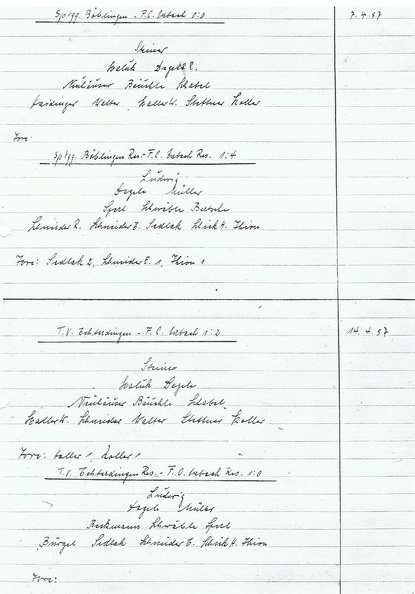 Spvgg. Böblingen - F.C. Urbach 0:0 7.4.57
Steiner
Walük Degele R.
Neuhäuser Bäuchle Schebel
Walter Haller W. Stettner Zoller
Tore:
Spvgg. Böblingen Res. - F.C. Urbach Res. 1:4
Ludwig
Degele Müller
Schwäble
Schneider R. Schneider E. Sedlak Schick H. Thion
Tore: Sedlak 2, Schneider E. 1, Thion 1
T.V. Echterdingen - F.C. Urbach 1:2 14.4.57
Steiner
Walük Degele
Neuhäuser Bäuchle Schebel
Haller W. Schneider Walter Stettner Zoller
Tore: Haller 1, Zoller 1
T.V. Echterdingen Res. - F.C. Urbach Res. 1:0
Ludwig
Degele Müller
Beckmann Schwäble
Bürgel Sedlak Schneider E. Schick H. Thion
Tore: